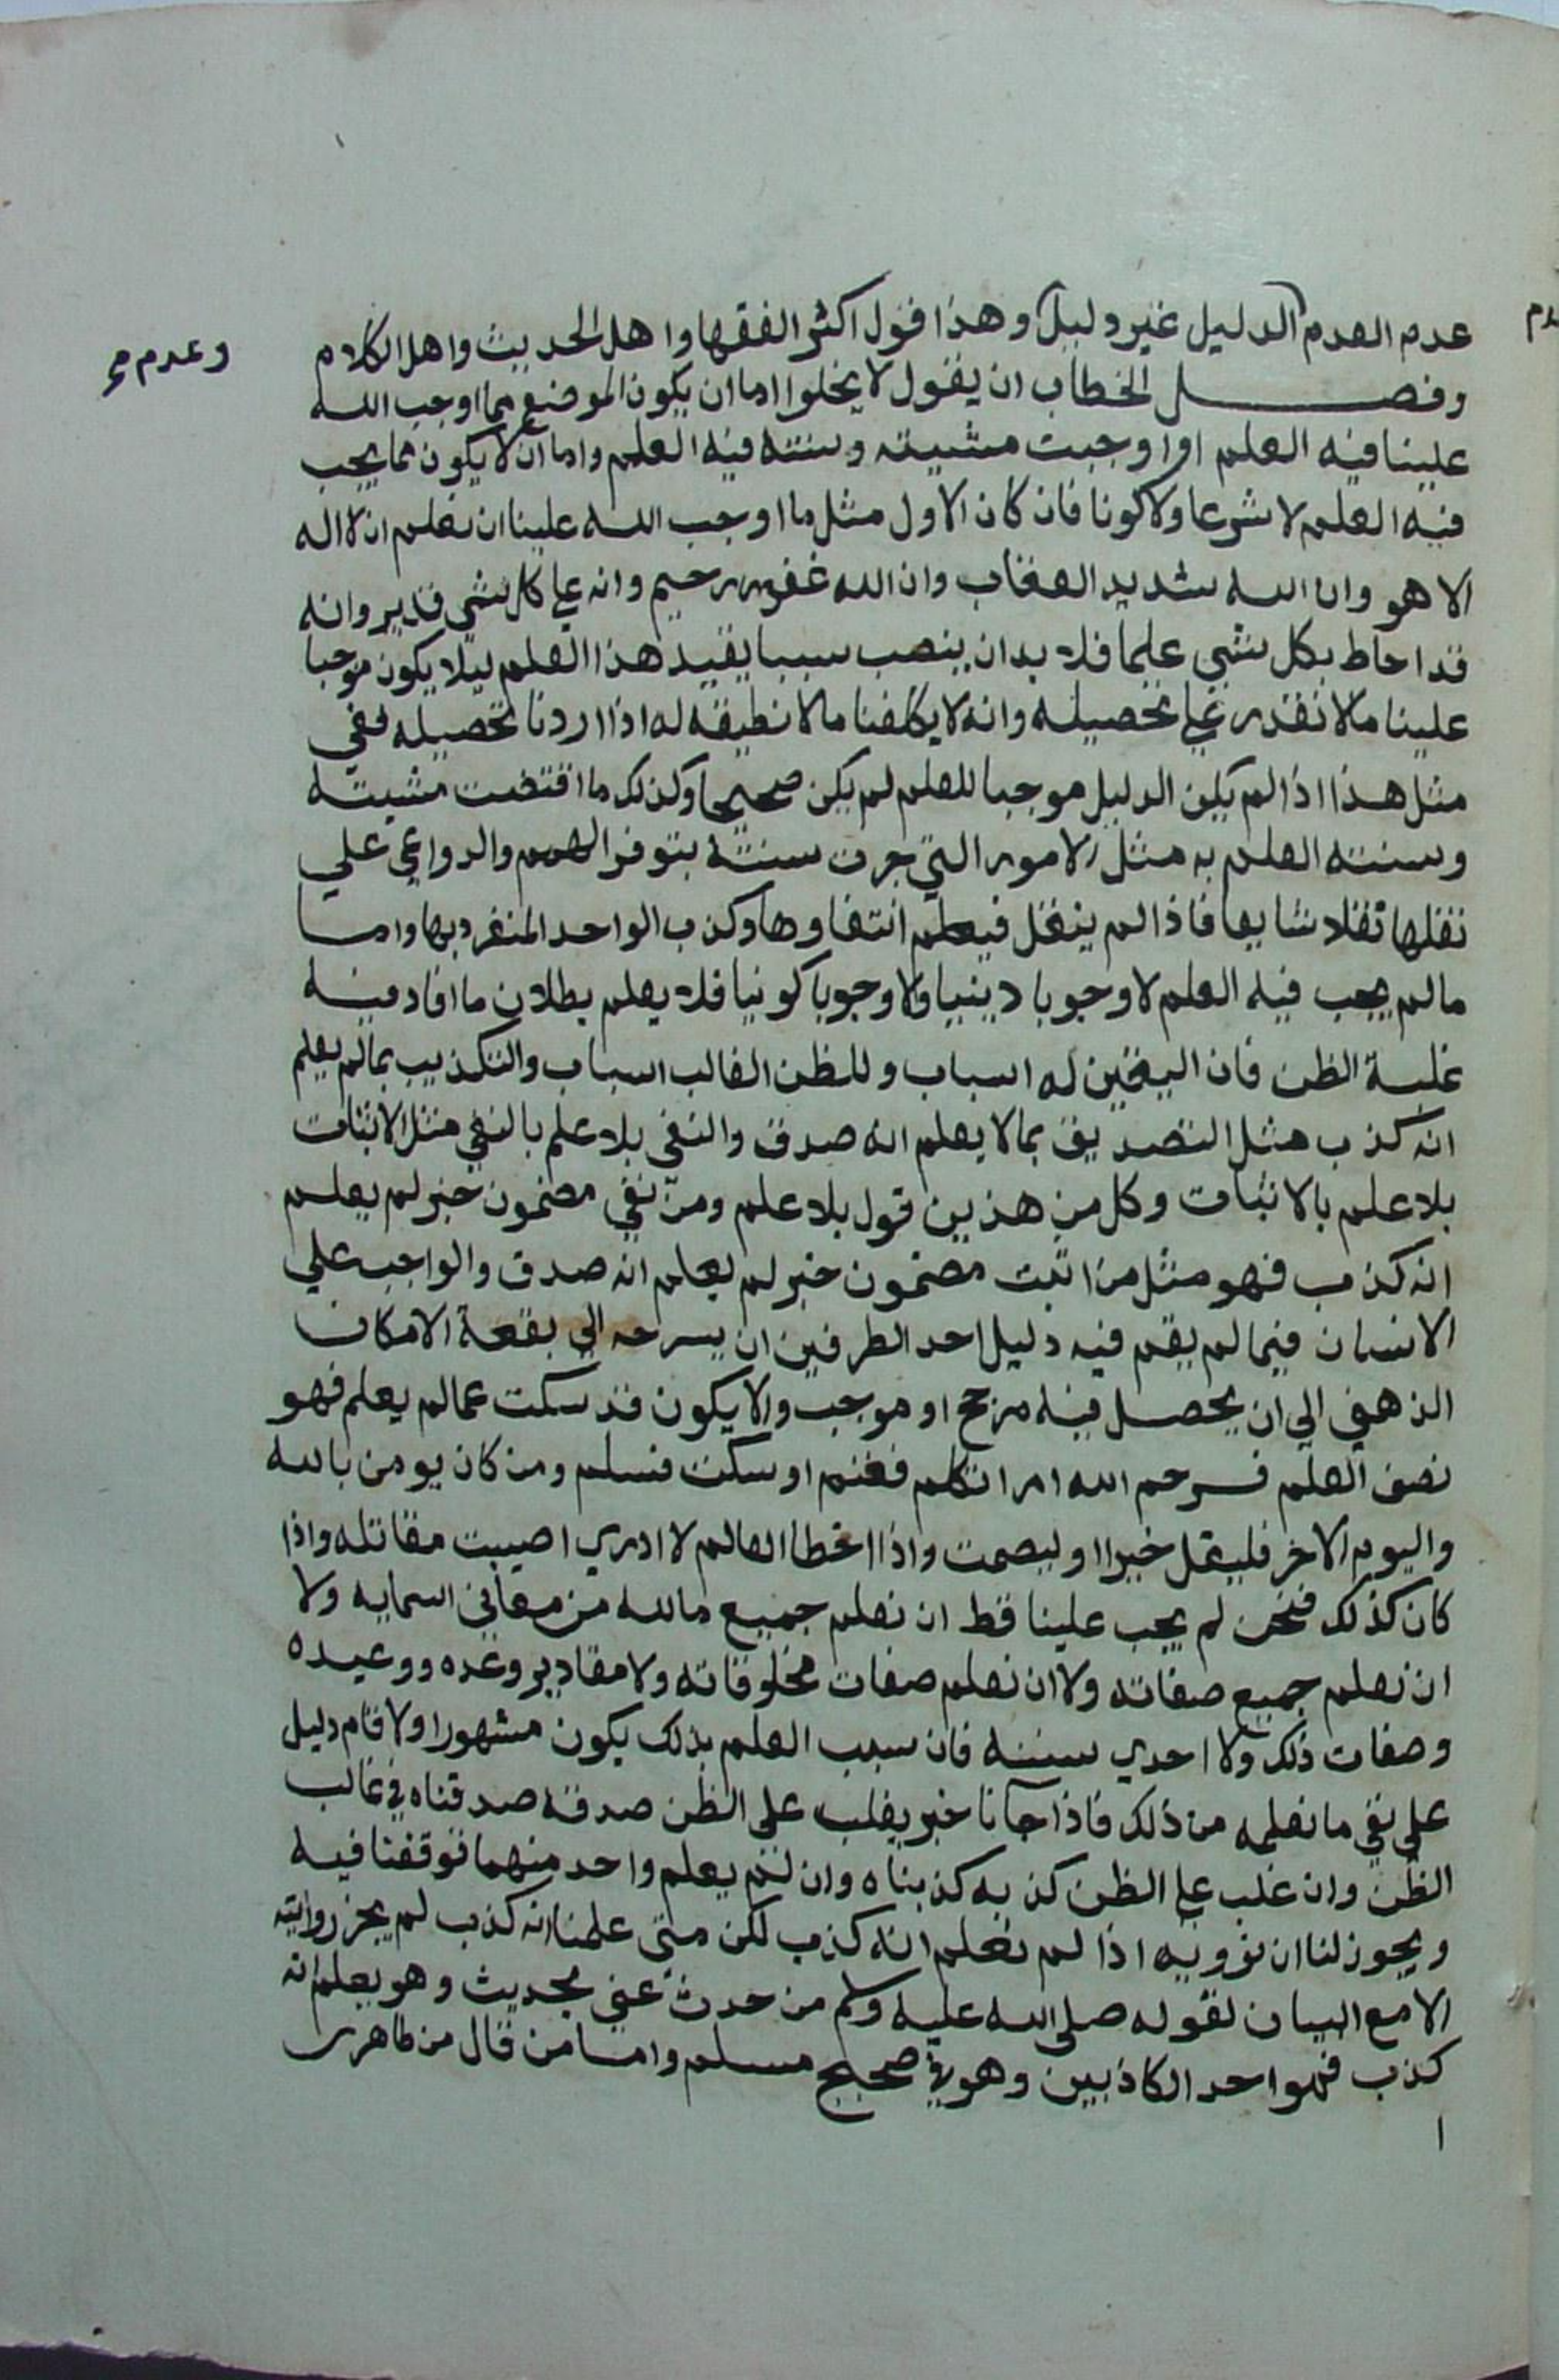 عدم العدم الدليل غير دليل وهذا قول اكثر الفقها واهل الحديث واهل الكلام
وعدم
وفصل الخطاب ان يقول لا يخلوا اما ان يكون الموضع مما اوجب الله
علينا فيه العلم او اوجبت مشيته وسنته فيه العلم واما ان لا يكون مما يجب
فيه العلم لا شرعا ولا كونا فان كان الاول مثل ما اوجب الله علينا ان نعلم ان لا اله
الا هو وان الله شديد العقاب وان الله غفور رحيم وانه على كل شي قدير وانه
قد احاط بكل شي علما فلا بد ان ينصب سببا يفيد هذا العلم ليلا يكون موجبا
علينا ما لا نقدر على تحصيله وانه لا يكلفنا ما لا نطيقه له اذا اردنا تحصيله ففي
مثل هذا اذا لم يكن الدليل موجبا للعلم لم يكن صحيحا وكذلك ما اقتضت مشيته
وسنته العلم به مثل الامور التي جرت سنته بتوفر الهمم والدواعي علي
نقلها نقلا شايعا فاذا لم ينقل فيعلم انتفاوها وكذب الواحد المنفرد بها واما
ما لم يجب فيه العلم لا وجوبا دينيا ولا وجوبا كونيا فلا يعلم بطلان ما افاد فيه
غلبة الظن فان اليقين له اسباب وللظن الغالب اسباب والتكذيب بما لم يعلم
انه كذب مثل التصديق بما لا يعلم انه صدق والنفي بلا علم بالنفي مثل الاثبات
بلا علم بالاثبات وكل من هذين قول بلا علم ومن نفي مضمون خبر لم يعلم
انه كذب فهو مثل من اثبت مضمون خبر لم يعلم انه صدق والواجب علي
الانسان فيما لم يقم فيه دليل احد الطرفين ان يسرحه الي بقعة الامكان
الذهني الي ان يحصل فيه مرجح او موجب والا يكون قد سكت عما لم يعلم فهو
نصف العلم فرحم الله امرا تكلم فغنم او سكت فسلم ومن كان يومن بالله
واليوم الاخر فليقل خيرا او ليصمت واذا اخطا العالم لا ادري اصيبت مقاتله واذا
كان كذلك فنحن لم يجب علينا قط ان نعلم جميع ما لله من معاني اسمايه ولا
ان نعلم جميع صفاته ولا ان نعلم صفات مخلوقاته ولا مقادير وعده ووعيده
وصفات ذلك ولا احدي سننه فان سبب العلم بذلك يكون مشهورا ولا قام دليل
على نفي ما نعلمه من ذلك فاذا جانا خبر يغلب على الظن صدقه صدقناه في غالب
الظن وان غلب على الظن كذبه كذبناه وان لم يعلم واحد منهما توقفنا فيه
ويجوز لنا ان نرويه اذا لم نعلم انه كذب لكن متي علمنا انه كذب لم يجز روايته
الا مع البيان لقوله صلى الله عليه وسلم من حدث عني بحديث وهو يعلم انه
كذب فهو احد الكاذبين وهو في صحيح مسلم واما من قال من ظاهري